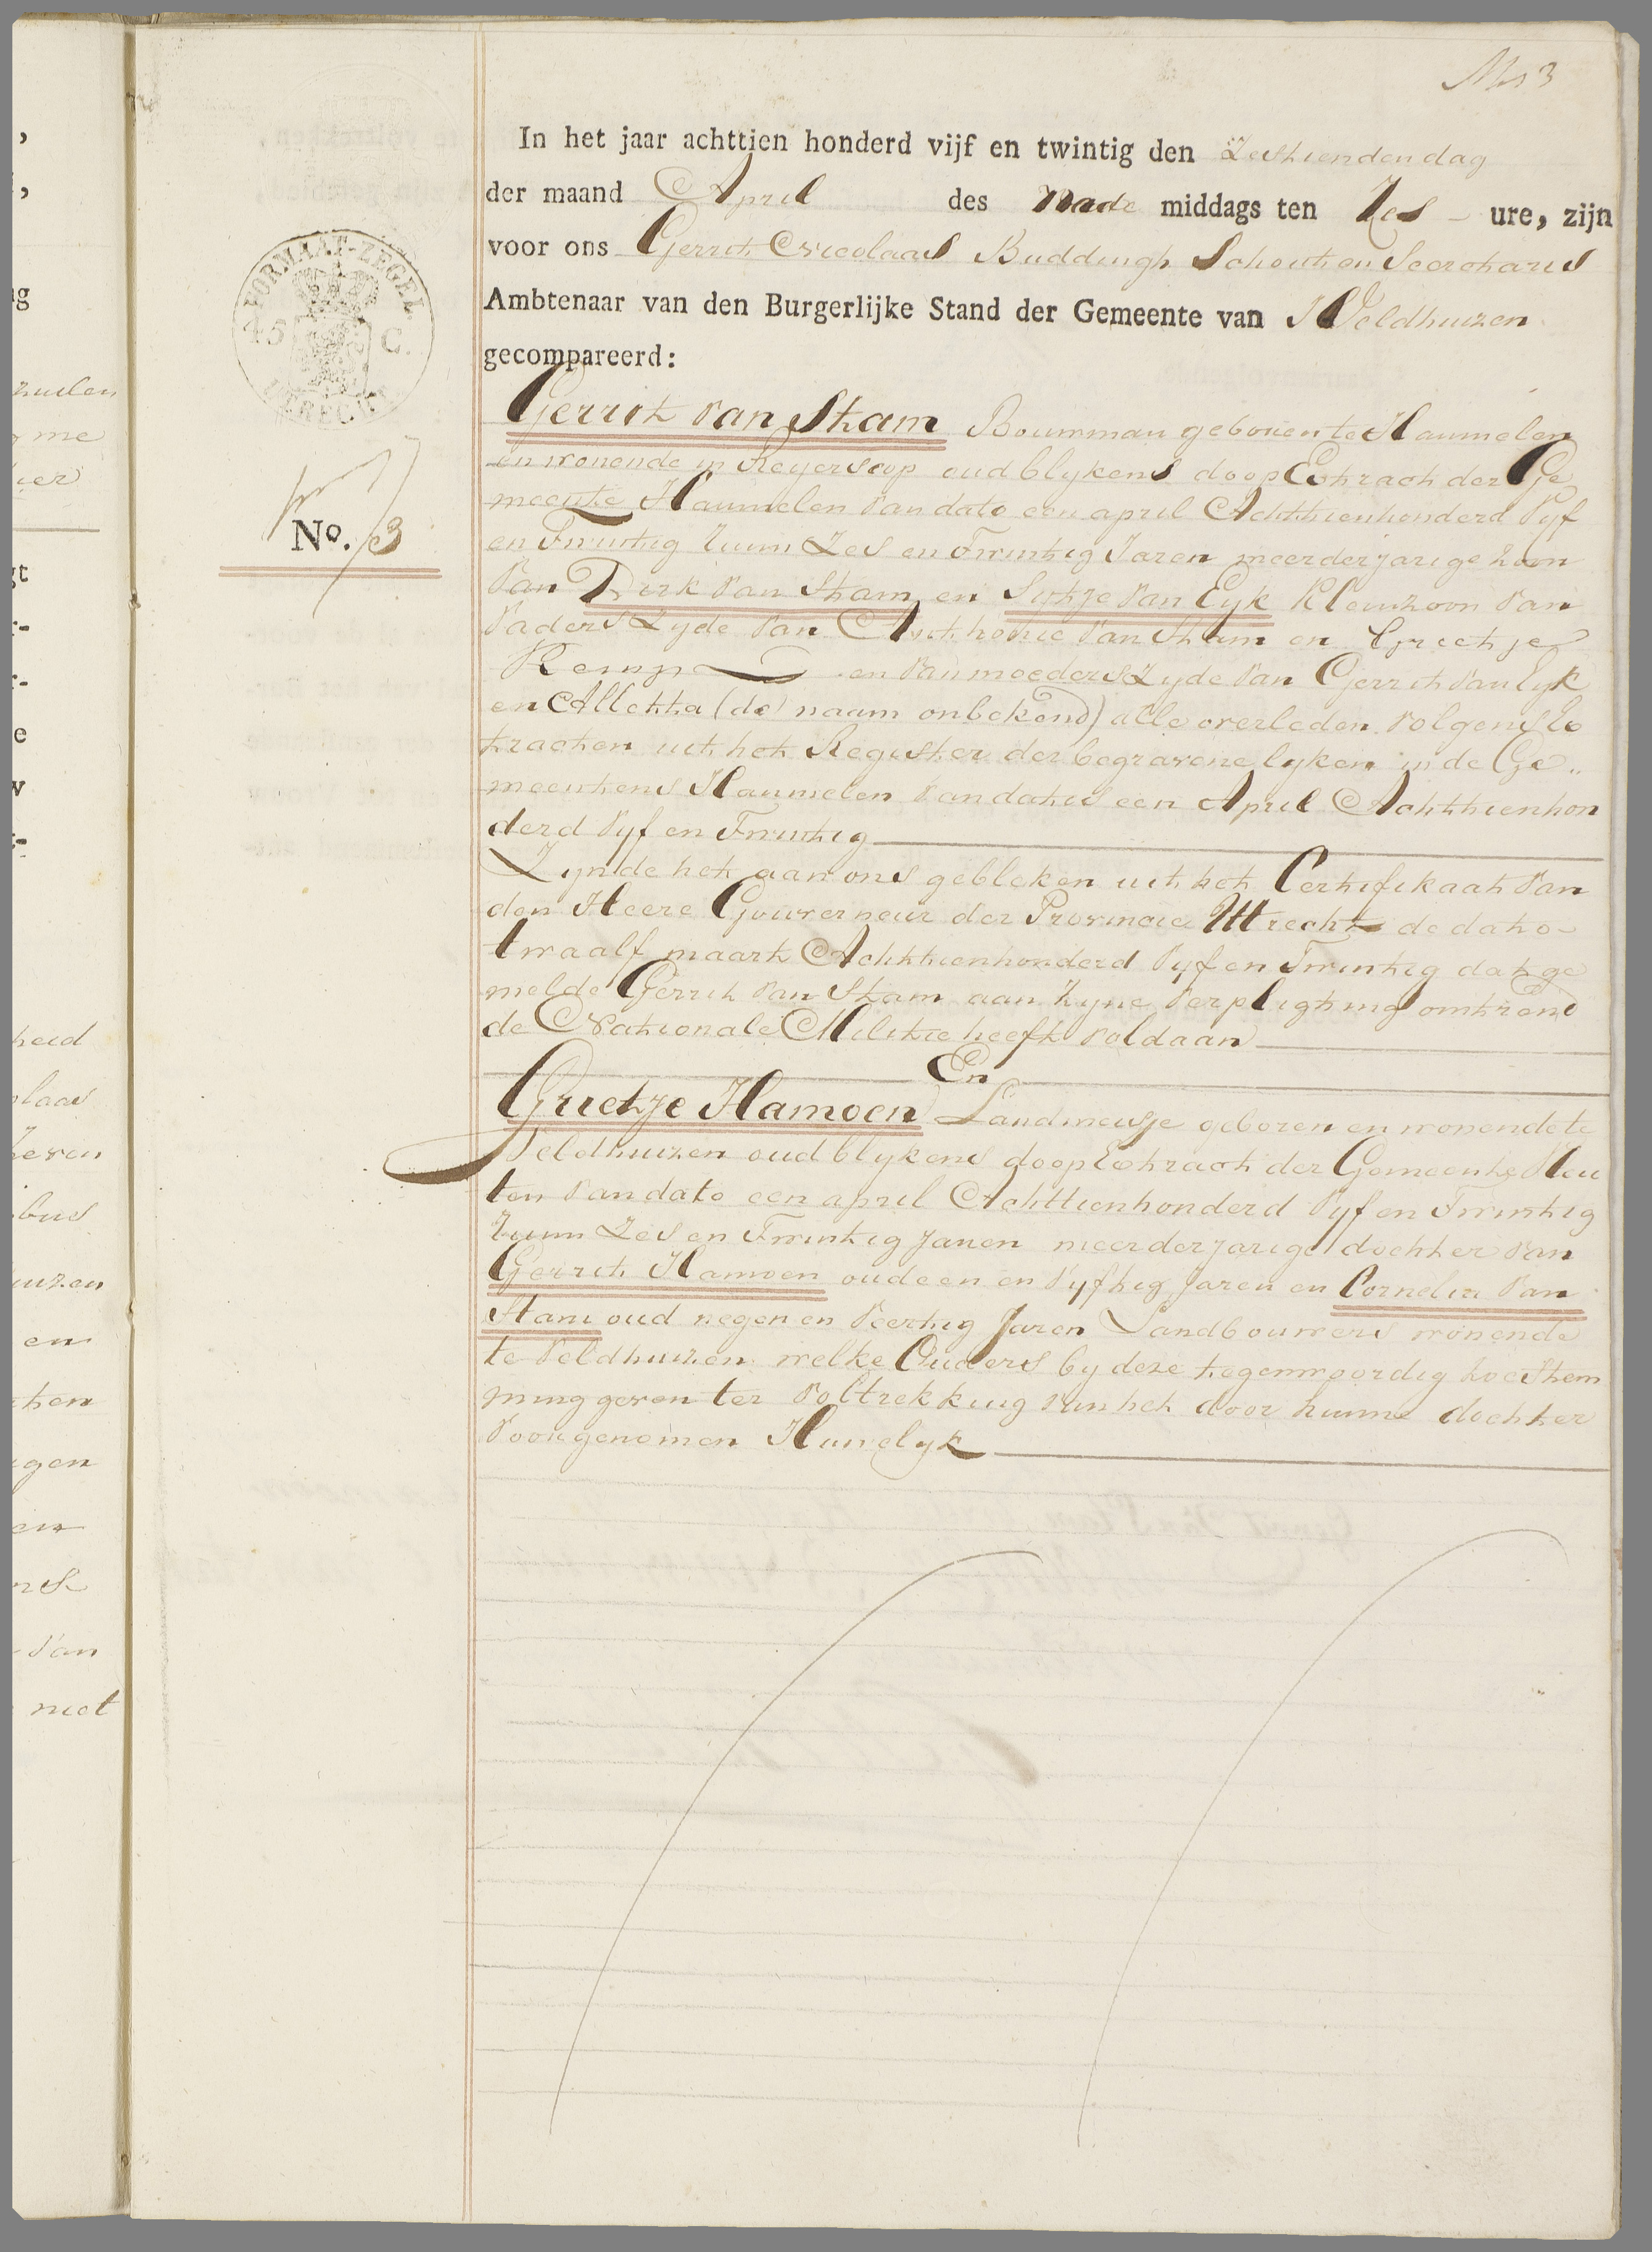 No 3
In het jaar achttien honderd vijf en twintig den Zesthienden dag
der maand April des Nade middags ten Zes ure, zijn
voor ons Gerrit Nicolaas Buddingh Schout en Secretaris
Ambtenaar van den Burgerlijke Stand der Gemeente van Veldhuizen
gecompareerd:
FORMAAT-ZEGEL.
45 C.
UTRECHT
No. 3
Gerrit van Stam Bouwman geboren te Harmelen
en wonende in Reyerscop oud blykens doop Extract der Ge
meente Harmelen van dato een april Achttienhonderd Vyf
en Twintig ruim Zes en Twintig Jaren meerderjarige zoon
van Dirk van Stam en Sytje van Eyk Kleinzoon van
Vaders Zyde van Anthonie van Stam en Grietje
Kemp en van moeders Zyde van Gerrit van Eyk
en Alletta (de naam onbekend) alle overleden volgens Ex
tracten uit het Register der begravene lyken in de Ge„
meentens Harmelen van datus een April Achttienhon
derd Vyf en Twintig
Zynde het aan ons gebleken uit het Certifikaat van
den Heere Gouverneur der Provincie Uttrecht de dato
twaalf maart Achttienhonderd Vyf en Twintig dat ge
melde Gerrit van Stam aan zyne verpligting omtrend
de Nationale Militie heeft voldaan
En
Grietje Hamoen Landmeisje geboren en wonende te
Veldhuizen oud blykens doop Extract der Gemeente Vleu
ten van dato een april Achttienhonderd Vyf en Twintig
ruim Zes en Twintig Jaren meerderjarige dochter van
Gerrit Hamoen oud een en Vyftig Jaren en Cornelia van
Stam oud negen en Veertig Jaren Landbouwers wonende
te Veldhuizen welke Ouders by deze tegenwoordig toestem
ming geven ter voltrekking van het door hunne dochter
voorgenomen Huwelyk